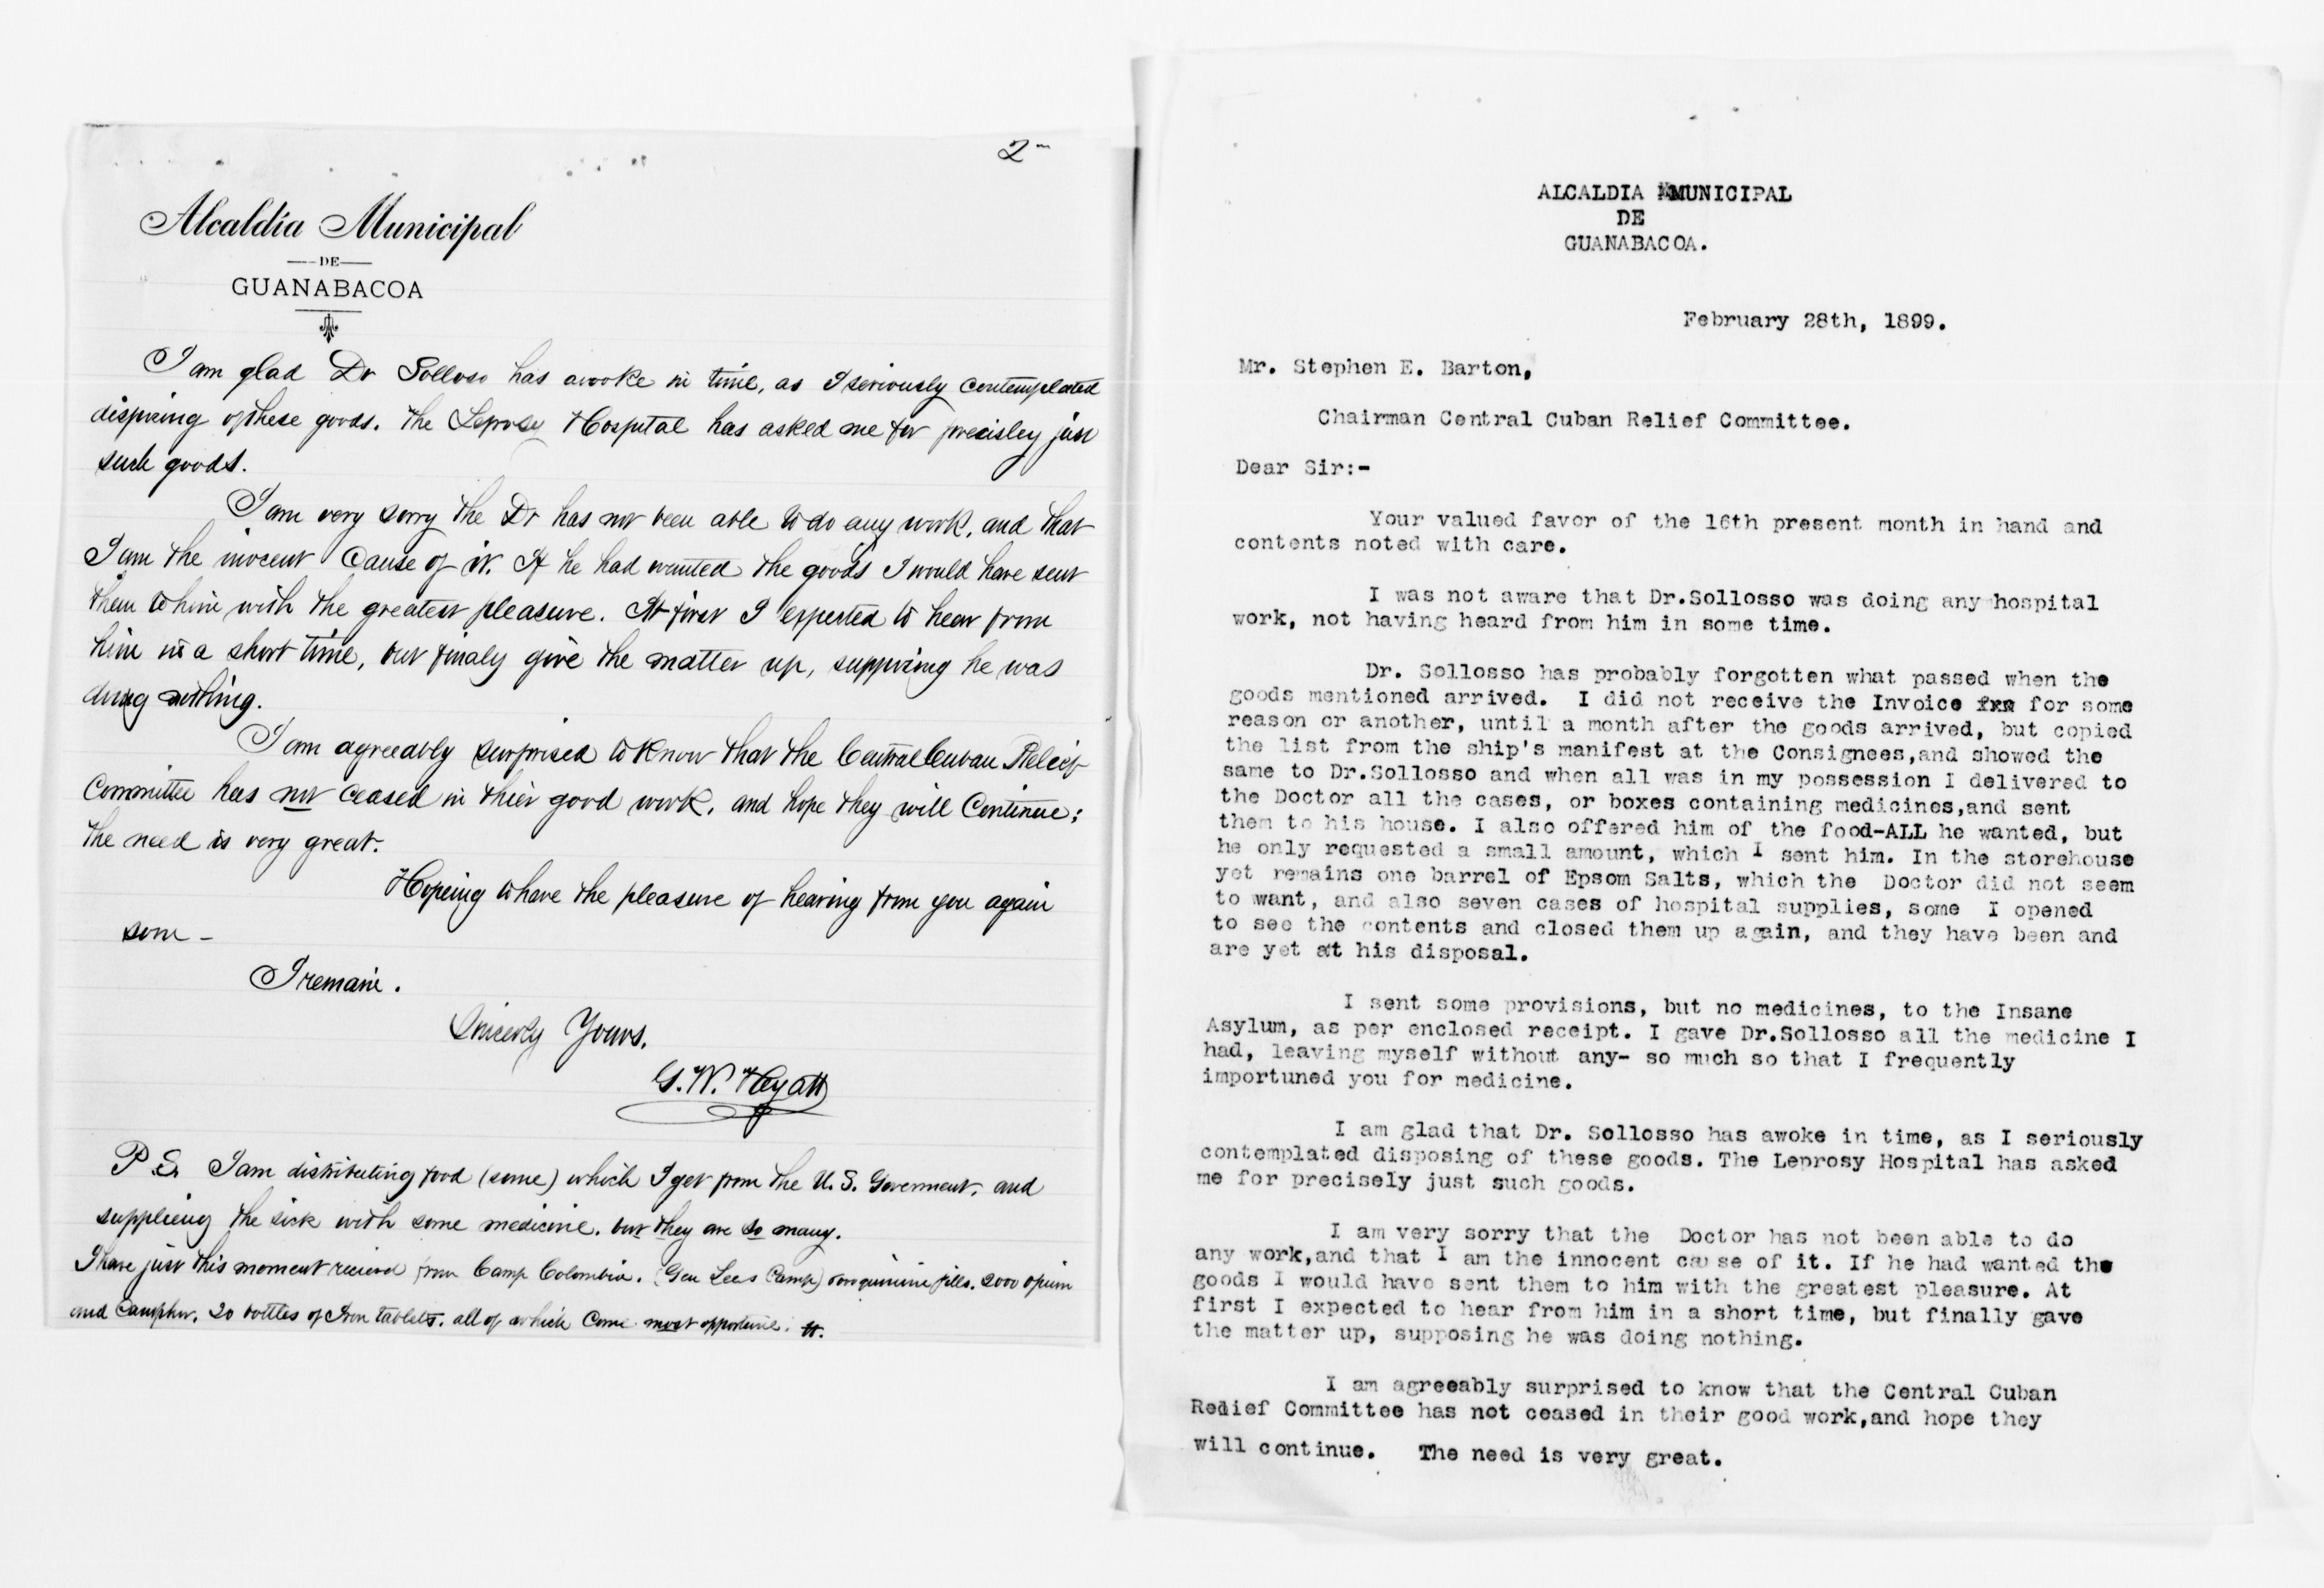 2
Alcaldía Municipal
DE
GUANABACOA
I am glad Dr Solloso has awoke in time, as I seriously contemplated
disposing of these goods. The Leprosy Hospital has asked me for precisley just
such goods.
I am very sorry the Dr has not been able to do any work, and that
I am the inocent cause of it. If he had wanted the goods I would have sent
them to him with the greatest pleasure. At first I expected to hear from
him in a short time, but finaly give the matter up, supposing he was
doing nothing.
I am agreeably surprised to know that the Central Cuban Releif
Committee has not ceased in thier good work, and hope they will Continue;
the need is very great.
Hopeing to have the pleasure of hearing from you again
soon -
I remain.
Sincerly Yours,
G. W. Hyatt
P.S. I am distributing food (some) which I get from the U.S. Goverment, and
supplieing the sick with some medicine. but they are so many.
I have just this moment recieved from Camp Colombia. (Gen Lees Camp) quinine pills. 2000 opium
and Camphor. 20 bottles of Iron tablets. all of which Come most opportune.
ALCALDIA MUNICIPAL
DE
GUANABACOA.
February 28th, 1899.
Mr. Stephen E. Barton,
Chairman Central Cuban Relief Committee.
Dear Sir:-
Your valued favor of the 16th present month in hand and
contents noted with care.
I was not aware that Dr.Sollosso was doing any hospital
work, not having heard from him in some time.
Dr. Sollosso has probably forgotten what passed when the
goods mentioned arrived. I did not receive the Invoice for some
reason or another, until a month after the goods arrived, but copied
the list from the ship's manifest at the Consignees,and showed the
same to Dr.Sollosso and when all was in my possession I delivered to
the Doctor all the cases, or boxes containing medicines,and sent
them to his house. I also offered him of the food-ALL he wanted, but
he only requested a small amount, which I sent him. In the storehouse
yet remains one barrel of Epsom Salts, which the Doctor did not seem
to want, and also seven cases of hospital supplies, some I opened
to see the contents and closed them up again, and they have been and
are yet at his disposal.
I sent some provisions, but no medicines, to the Insane
Asylum, as per enclosed receipt. I gave Dr.Sollosso all the medicine I
had, leaving myself without any- so much so that I frequently
importuned you for medicine.
I am glad that Dr. Sollosso has awoke in time, as I seriously
contemplated disposing of these goods. The Leprosy Hospital has asked
me for precisely just such goods.
I am very sorry that the Doctor has not been able to do
any work,and that I am the innocent cause of it. If he had wanted the
goods I would have sent them to him with the greatest pleasure. At
first I expected to hear from him in a short time, but finally gave
the matter up, supposing he was doing nothing.
I am agreeably surprised to know that the Central Cuban
Relief Committee has not ceased in their good work,and hope they
will continue. The need is very great.